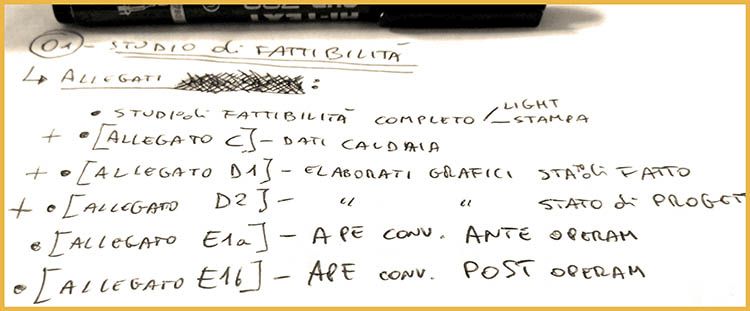 01 - STUDIO di FATTIBILITÀ
↳ ALLEGATI :
• STUDIO di FATTIBILITÀ COMPLETO / LIGHT
— STAMPA
+ • [ALLEGATO C] - DATI CALDAIA
+ • [ALLEGATO D1] - ELABORATI GRAFICI STATO di FATTO
+ • [ALLEGATO D2] - " " STATO di PROGET
• [ALLEGATO E1a] - APE CONV. ANTE OPERAM
• [ALLEGATO E1b] - APE CONV. POST OPERAM